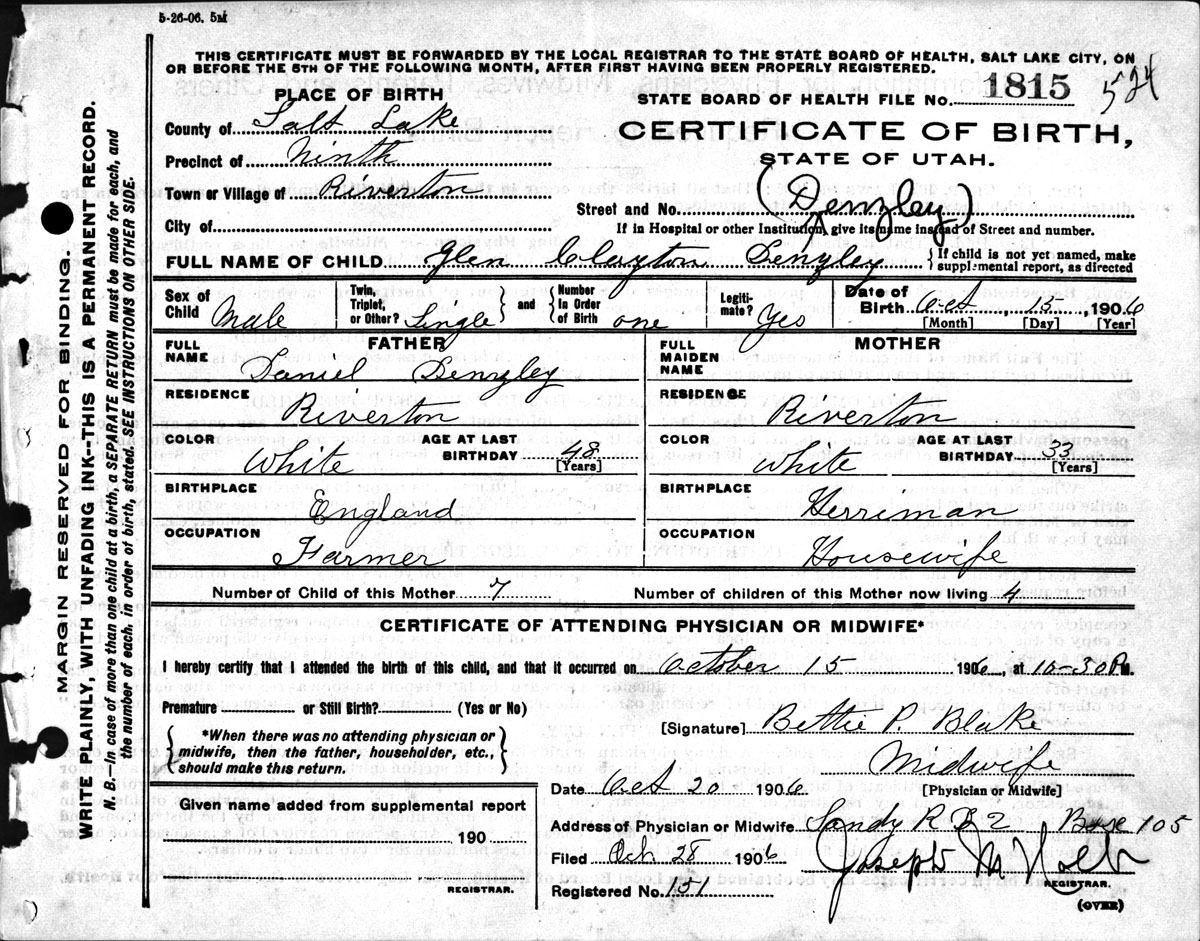 5-26-06. 5M
THIS CERTIFICATE MUST BE FORWARDED BY THE LOCAL REGISTRAR TO THE STATE BOARD OF HEALTH, SALT LAKE CITY, ON
OR BEFORE THE 5TH OF THE FOLLOWING MONTH, AFTER FIRST HAVING BEEN PROPERLY REGISTERED.
524
PLACE OF BIRTH
STATE BOARD OF HEALTH FILE No. 1815
County of Salt Lake
CERTIFICATE OF BIRTH,
STATE OF UTAH.
Precinct of Ninth
Town or Village of Riverton
Street and No. (Denzley)
City of
If in Hospital or other Institution, give its name instead of Street and number.
FULL NAME OF CHILD Glen Clayton Denzley {If child is not yet named, make
supplemental report, as directed
Sex of Child Male
Twin, Triplet, or Other? Single
and Number In Order of Birth one
Legitimate? Yes
Date of Birth Oct 15, 1906
[Month] [Day] [Year]
FATHER
FULL NAME Daniel Denzley
RESIDENCE Riverton
COLOR White AGE AT LAST BIRTHDAY 48
[Years]
BIRTHPLACE England
OCCUPATION Farmer
MOTHER
FULL MAIDEN NAME
RESIDENCE Riverton
COLOR White AGE AT LAST BIRTHDAY 33
[Years]
BIRTHPLACE Herriman
OCCUPATION Housewife
Number of Child of this Mother 7 Number of children of this Mother now living 4
CERTIFICATE OF ATTENDING PHYSICIAN OR MIDWIFE*
I hereby certify that I attended the birth of this child, and that it occurred on October 15 1906, at 10-30 P.M.
Premature or Still Birth? (Yes or No)
[Signature] Bettie P. Blake
Midwife
[Physician or Midwife]
*When there was no attending physician or
midwife, then the father, householder, etc.,
should make this return.
Date Oct 20 1906
Given name added from supplemental report
190
REGISTRAR.
Address of Physician or Midwife Sandy R D 2 Box 105
Filed Oct 28 1906 Joseph M Holt
REGISTRAR.
Registered No. 151
(OVER)
MARGIN RESERVED FOR BINDING.
WRITE PLAINLY, WITH UNFADING INK--THIS IS A PERMANENT RECORD.
N. B.—In case of more than one child at a birth, a SEPARATE RETURN must be made for each, and
the number of each, in order of birth, stated. SEE INSTRUCTIONS ON OTHER SIDE.